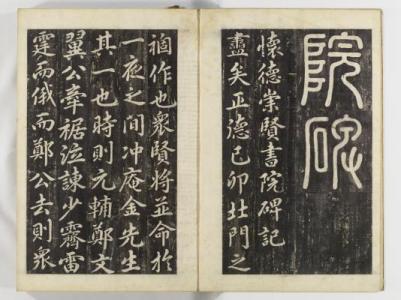 院碑
懷德崇賢書院碑記
盡矣正德己卯北門之
禍作也衆賢將並命於
一夜之間冲庵金先生
其一也時則元輔鄭文
翼公牽裾泣諫少霽雷
霆而俄而鄭公去則衆